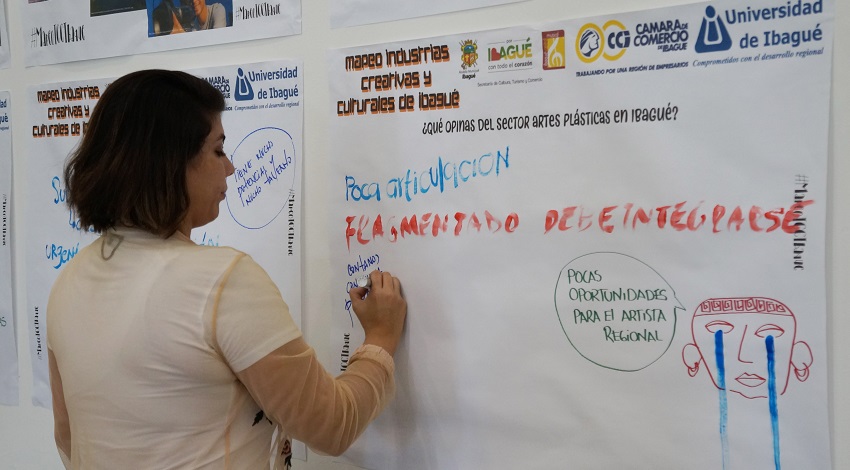 #MapeoICCIbague
MAPEO INDUSTRIAS
CREATIVAS Y
CULTURALES DE IBAGUÉ
CÁMARA DE
COMERCIO
DE IBAGUÉ
Universidad
de Ibagué
Comprometidos con el desarrollo regional
TIENE MUCHO
POTENCIAL Y
MUCHO TALENTO
#MapeoICCIbague
MAPEO INDUSTRIAS
CREATIVAS Y
CULTURALES DE IBAGUÉ
Ibagué
POR
IBAGUÉ
con todo el corazón
Secretaría de Cultura, Turismo y Comercio
CCI
CÁMARA DE
COMERCIO
DE IBAGUÉ
TRABAJANDO POR UNA REGIÓN DE EMPRESARIOS
Universidad
de Ibagué
Comprometidos con el desarrollo regional
¿QUÉ OPINAS DEL SECTOR ARTES PLÁSTICAS EN IBAGUÉ?
Poca articulación
FRAGMENTADO DEBE INTEGRARSE
POCAS
OPORTUNIDADES
PARA EL ARTISTA
REGIONAL
#MapeoICCIbague